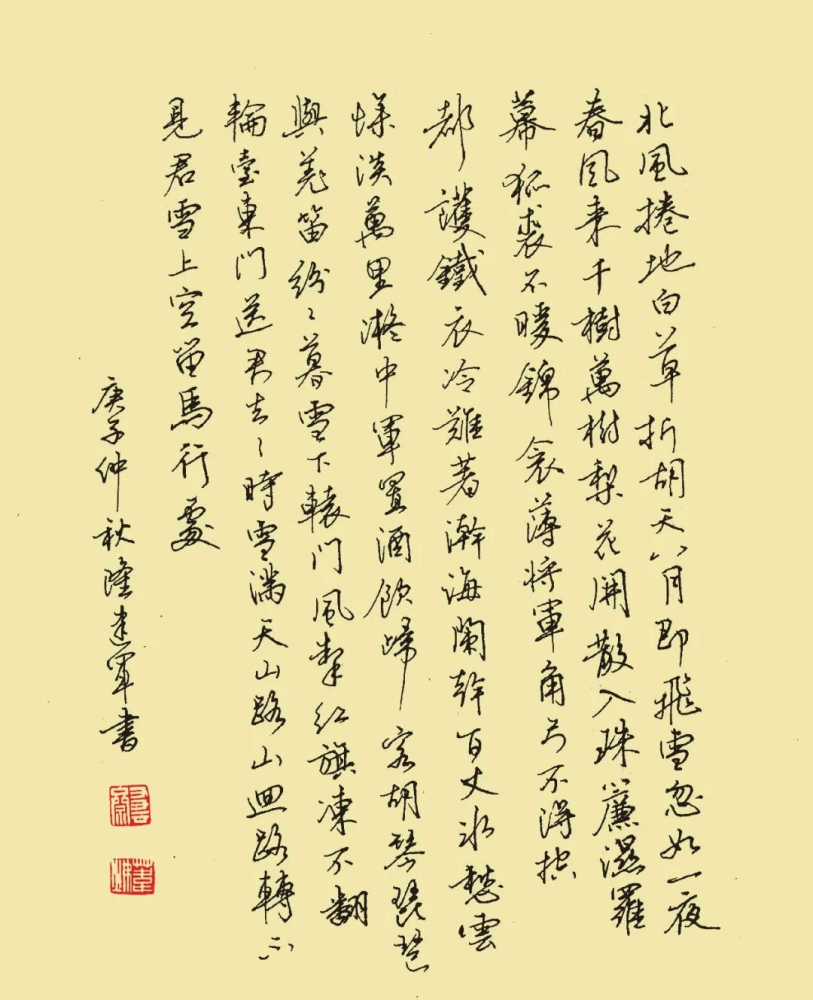 北風捲地白草折胡天八月即飛雪忽如一夜
春風来千樹萬樹梨花開散入珠簾濕羅
幕狐裘不暖錦衾薄将軍角弓不得控
都護鐵衣冷難著瀚海闌幹百丈冰愁雲
慘淡萬里凝中軍置酒飲歸客胡琴琵琶
與羌笛紛〻暮雪下轅門風掣紅旗凍不翻
輪臺東門送君去〻時雪滿天山路山迴路轉不
見君雪上空留馬行處
庚子仲秋隆建軍書